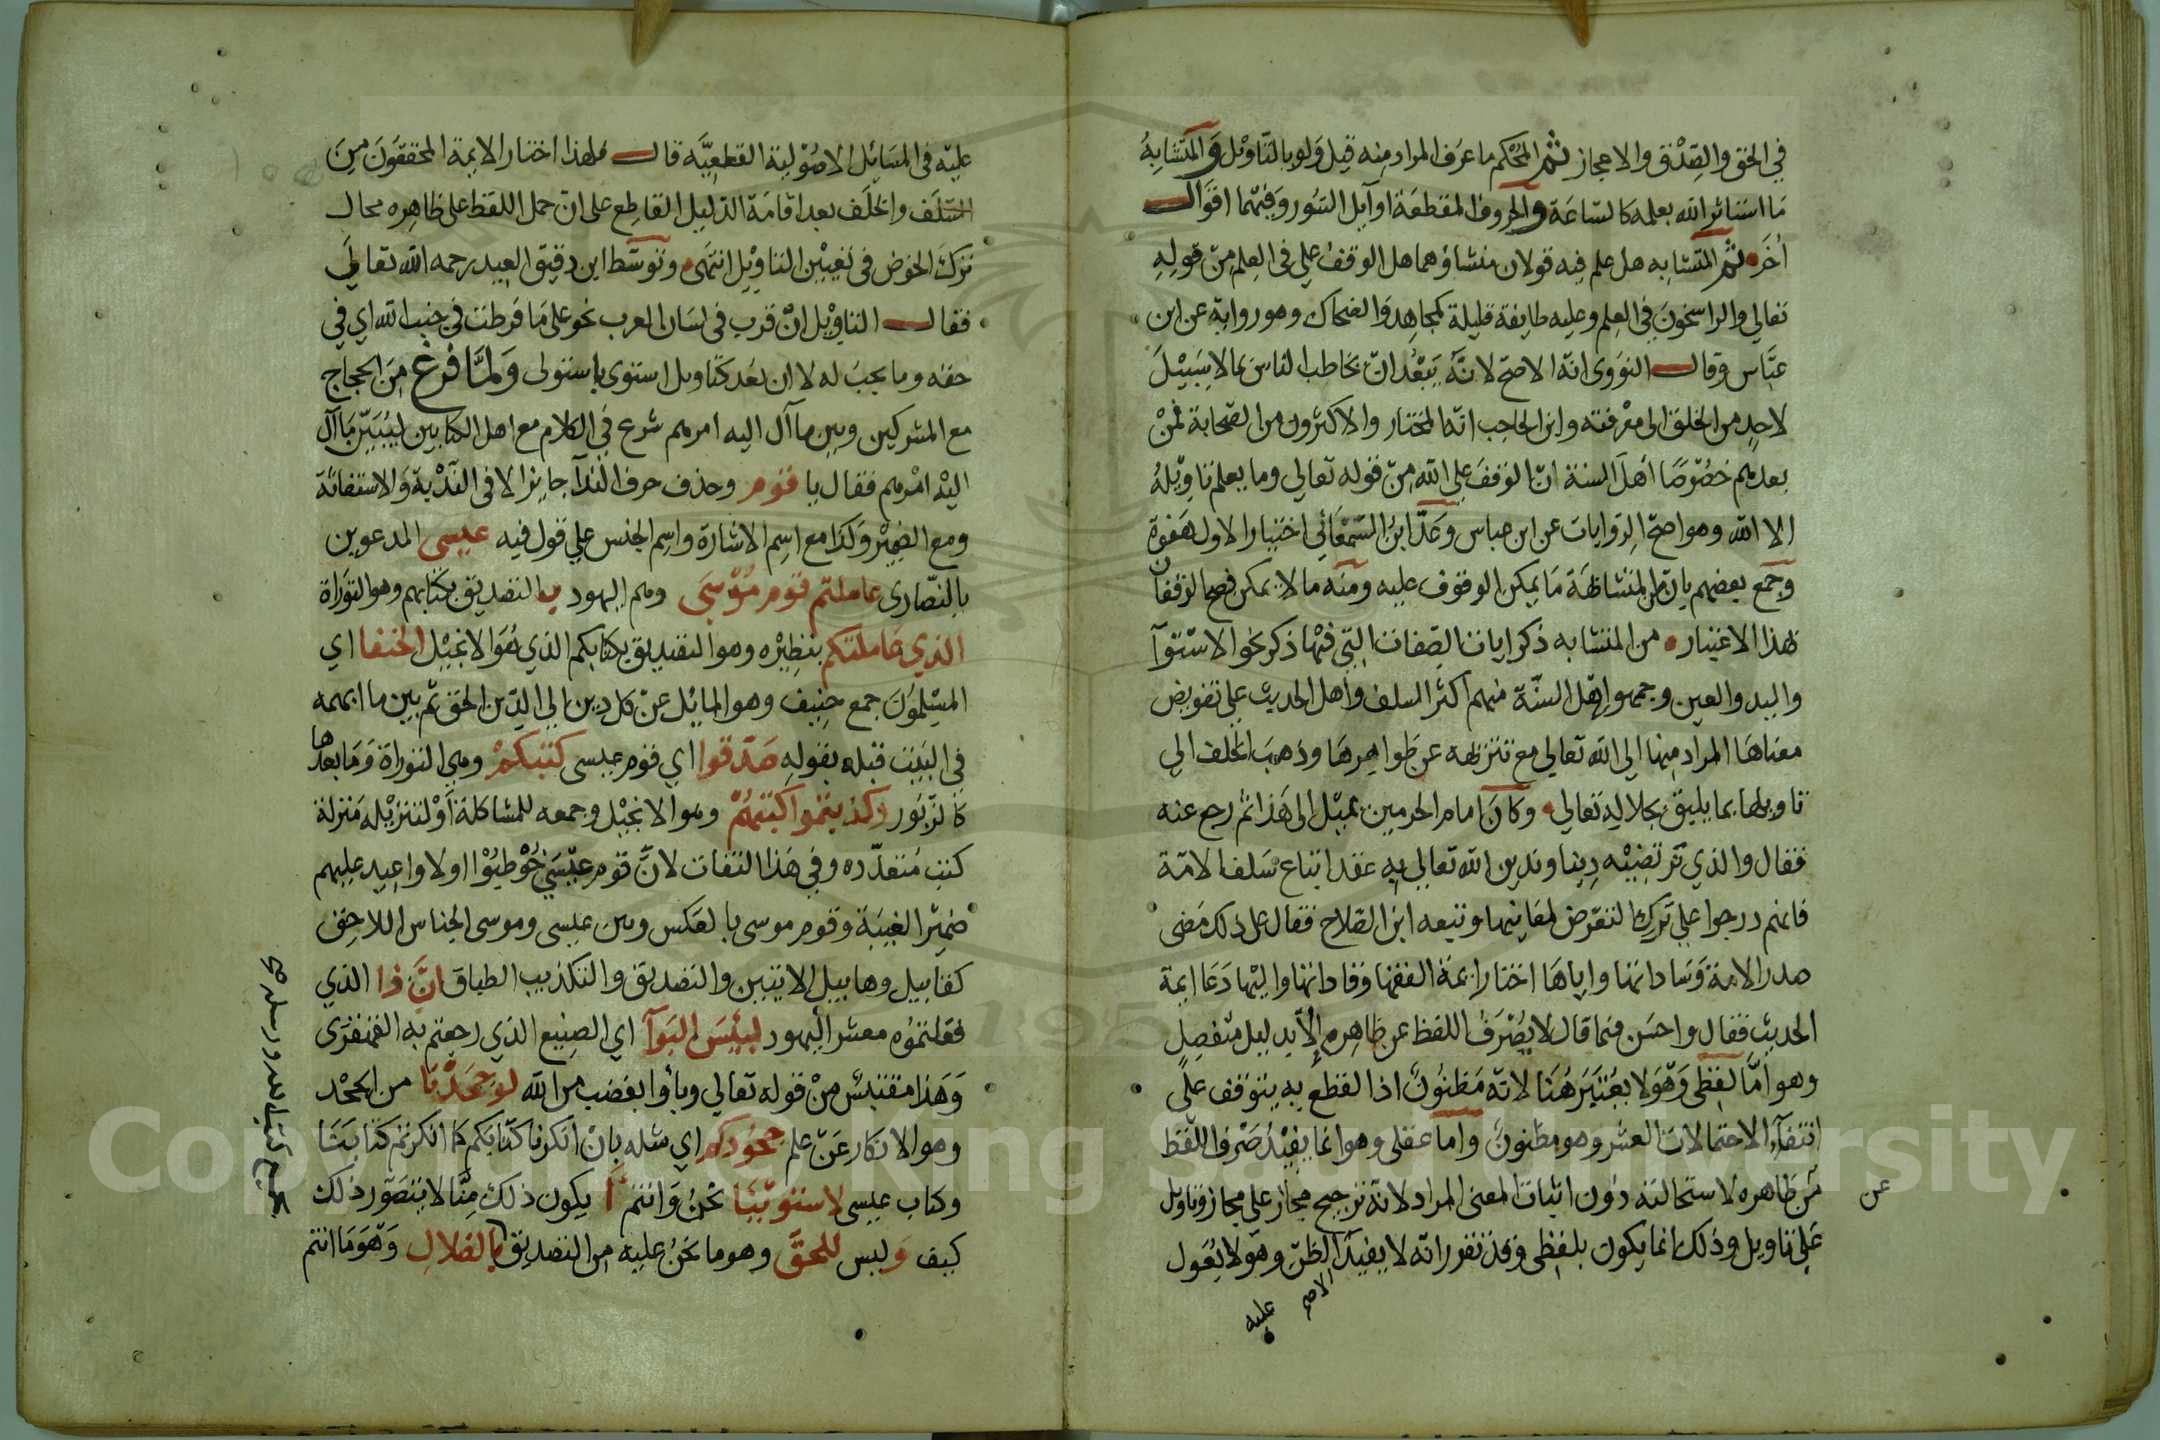 في الحق والصدق والاعجاز ثم المحكم ما عرف المراد منه قيل ولو بالتاويل والمتشابه
ما استاثر الله بعلمه كالساعة والحروف المقطعة اوايل السور وفيهما اقوال
أخر ثم المتشابه هل علم فيه قولان منشاؤهما هل الوقف علي في العلم من قوله
تعالي والراسخون في العلم وعليه طايفة قليلة كمجاهد والضحاك وهو رواية عن ابن
عباس وقال النووى انه الاصح لانه يبعد ان يخاطب الناس بما لا سبيل
لاحد من الخلق الى معرفته وابن الحاجب انه المختار والاكثرون من الصحابة فمن
بعدهم خصوصا اهل السنة ان الوقف علي الله من قوله تعالي وما يعلم تاويله
الا الله وهو اصح الروايات عن ابن عباس وعد ابن السمعاني اختيار الاول هفوة
وجمع بعضهم بان من المتشابه ما يمكن الوقوف عليه ومنه ما لا يمكن فصح الوقفان
بهذا الاعتبار من المتشابه ذكر ايات الصفات التي فيها ذكر نحو الاستوآ
واليد والعين وجمهور اهل السنة منهم اكثر السلف واهل الحديث علي تفويض
معناها المراد منها الي الله تعالي مع تنزيهه عن ظواهرها وذهب الخلف الي
تاويلها بما يليق بجلاله تعالي وكان امام الحرمين يميل الى هذا ثم رجع عنه
فقال والذي نرتضيه دينا وندين الله تعالي به عقدا اتباع سلف الامة
فانهم درجوا علي ترك التعرض لمعانيها وتبعه ابن الصلاح فقال على ذلك مضى
صدر الامة وساداتها واياها اختار ائمة الفقها وقاداتها واليها دعا ايمة
الحديث فقال واحسن فيما قال لا يصرف اللفظ عن ظاهره الا بدليل متفصل
وهو اما لفظي وهو لا يعتبر هنا لانه مظنون اذ القطع به يتوقف على
انتفآء الاحتمالات العشر وهو مظنون واما عقلى وهو انما يفيد صرف اللفظ
من ظاهره لاستحالته دون اثبات المعنى المراد لانه ترجيح مجاز على مجاز وتاويل
عن
على تاويل وذلك انما يكون بلفظى وقد تقرر انه لا يفيد الا الظن وهو لا يعول
الاصح
عليه
عليه فى المسائل الاصولية القطعية قال فلهذا اختار الايمة المحققون من
السلف والخلف بعد اقامة الدليل القاطع على ان حمل اللفظ على ظاهره محال
ترك الخوض فى تعيين التاويل انتهى وتوسط ابن دقيق العيد رحمه الله تعالي
فقال التاويل ان قرب فى لسان العرب نحو على ما فرطت في جنب الله اي في
حقه وما يجب له لا ان بعد كتاويل استوى باستولى ولما فرغ من الحجاج
مع المشركين وبين ما آل اليه امرهم شرع في الكلام مع اهل الكتابين ليبين ما آل
اليه امرهم فقال يا قوم وحذف حرف الندآ جائز الا فى الندبة والاستغاثة
ومع الضمير وكذا مع اسم الاشارة واسم الجنس علي قول فيه عيسى المدعوين
بالنصارى عاملتم قوم موسى وهم اليهود بالتصديق بكتابهم وهو التوراة
الذي عاملتكم بنظيره وهو التصديق بكتابكم الذي هو الانجيل الحنفا اي
المسلمون جمع حنيف وهو المايل عن كل دين الي الدين الحق ثم بين ما ابهمه
في البيت قبله بقوله صدقوا اي قوم عيسى كتبكم وهي التوراة وما بعدها
كالزبور وكذبتموا كتبهم وهو الانجيل وجمعه للمشاكلة او لتنزيله منزلة
كتب متعدده وفي هذا التفات لان قوم عيسى خوطبوا اولا واعيد عليهم
ضمير الغيبة وقوم موسى بالعكس وبين عيسى وموسى الجناس اللاحق
كقابيل وهابيل الاتيين والتصديق والتكذيب الطباق ان ذا الذي
فعلتموه معشر اليهود لبئس البوآ اي الصنيع الذي رجعتم به القهقرى
وهذا مقتبس من قوله تعالي وبأوا بغضب من الله لو جحدنا من الجحد
وهو الانكار عن علم جحودكم اي مثله بان انكرنا كتابكم كما انكرتم كتابنا
وكتاب عيسى لاستوينا نحن وانتم أ يكون ذلك منا لا يتصور ذلك
كيف و ليس للحق وهو ما نحن عليه من التصديق بالضلال وهو ما انتم